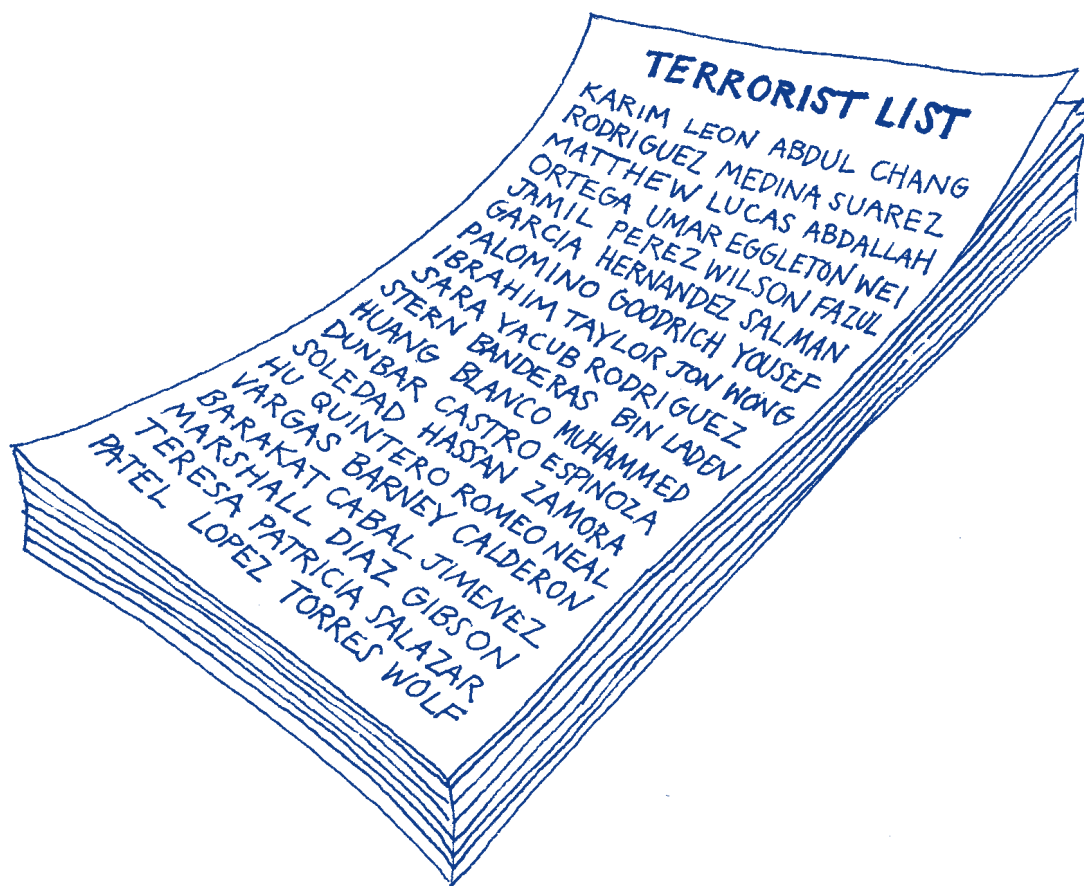 TERRORIST LIST
KARIM LEON ABDUL CHANG
RODRIGUEZ MEDINA SUAREZ
MATTHEW LUCAS ABDALLAH
ORTEGA UMAR EGGLETON WEI
JAMIL PEREZ WILSON FAZUL
GARCIA HERNANDEZ SALMAN
PALOMINO GOODRICH YOUSEF
IBRAHIM TAYLOR JON WONG
SARA YACUB RODRIGUEZ
STERN BANDERAS BIN LADEN
HUANG BLANCO MUHAMMED
DUNBAR CASTRO ESPINOZA
SOLEDAD HASSAN ZAMORA
HU QUINTERO ROMEO NEAL
VARGAS BARNEY CALDERON
BARAKAT CABAL JIMENEZ
MARSHALL DIAZ GIBSON
TERESA PATRICIA SALAZAR
PATEL LOPEZ TORRES WOLF